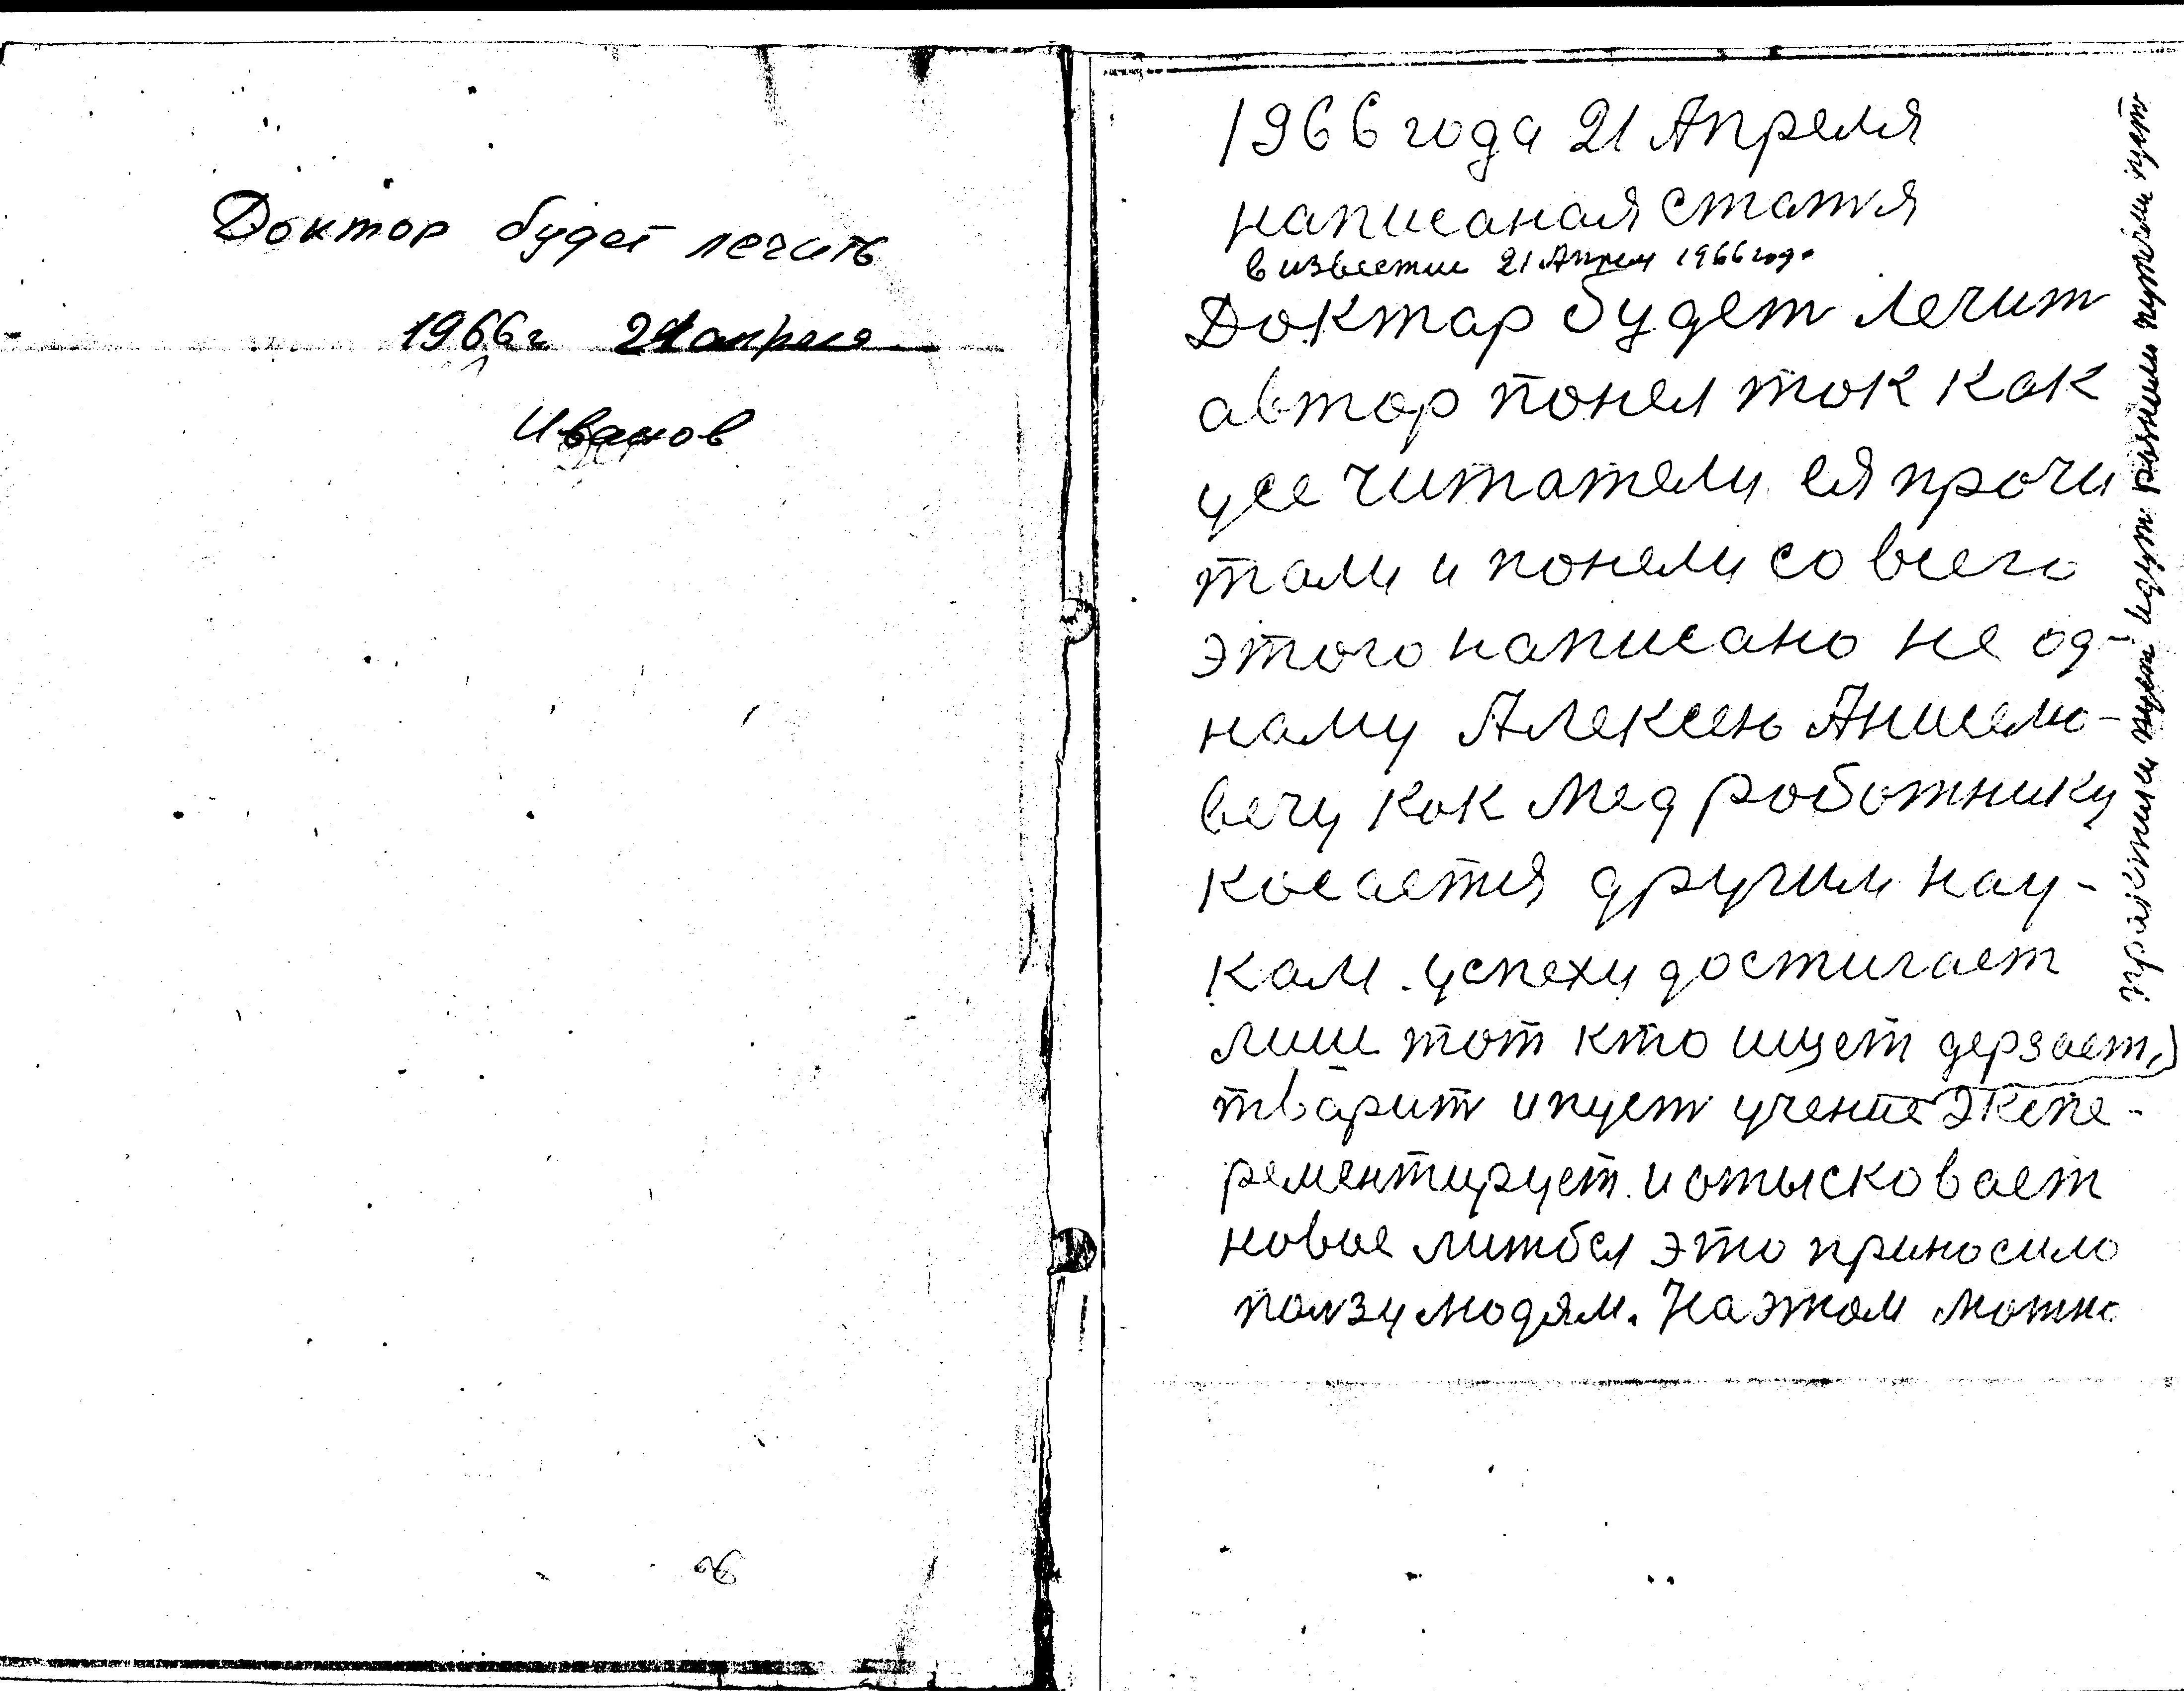 Доктор будет лечить
1966 г 21 апреля
Иванов
1966 года 21 Апреля
написаная статия
в известии 21 Апреля 1966 года
Доктар будет лечит
автор понел ток как
усе читатели ея прочи
тали и понели со всего
этого написано не од-
наму Алексею Анисемо-
вечу как мед роботнику
косается другим нау-
кам. успехи достигает
лиш тот кто ищет дерзает,
тварит и пуст учение экспе-
рементирует. и отысковает
новое литбы это приносило
ползу людям. На этом
практики пуст идут разными путями пуст